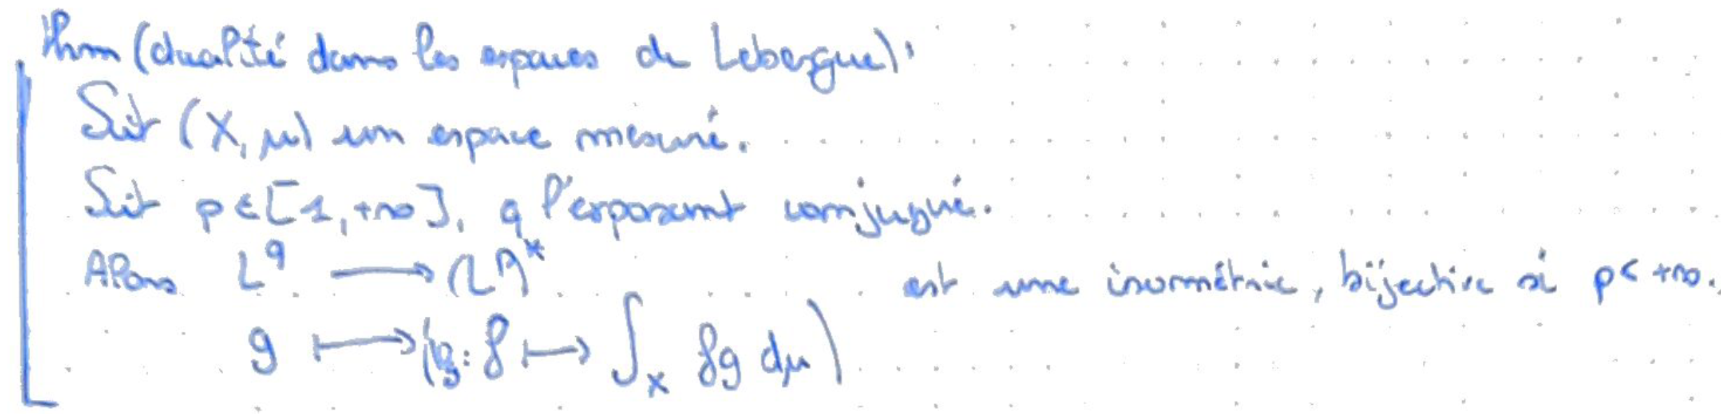 Thm (dualité dans les espaces de Lebesgue):
Soit (X, μ) un espace mesuré.
Soit p ∈ [1, +∞], q l'exposant conjugué.
Alors L^q ⟶ (L^p)^* est une isométrie, bijective si p < +∞.
g ⟼ (φ_g: f ⟼ ∫_X fg dμ)